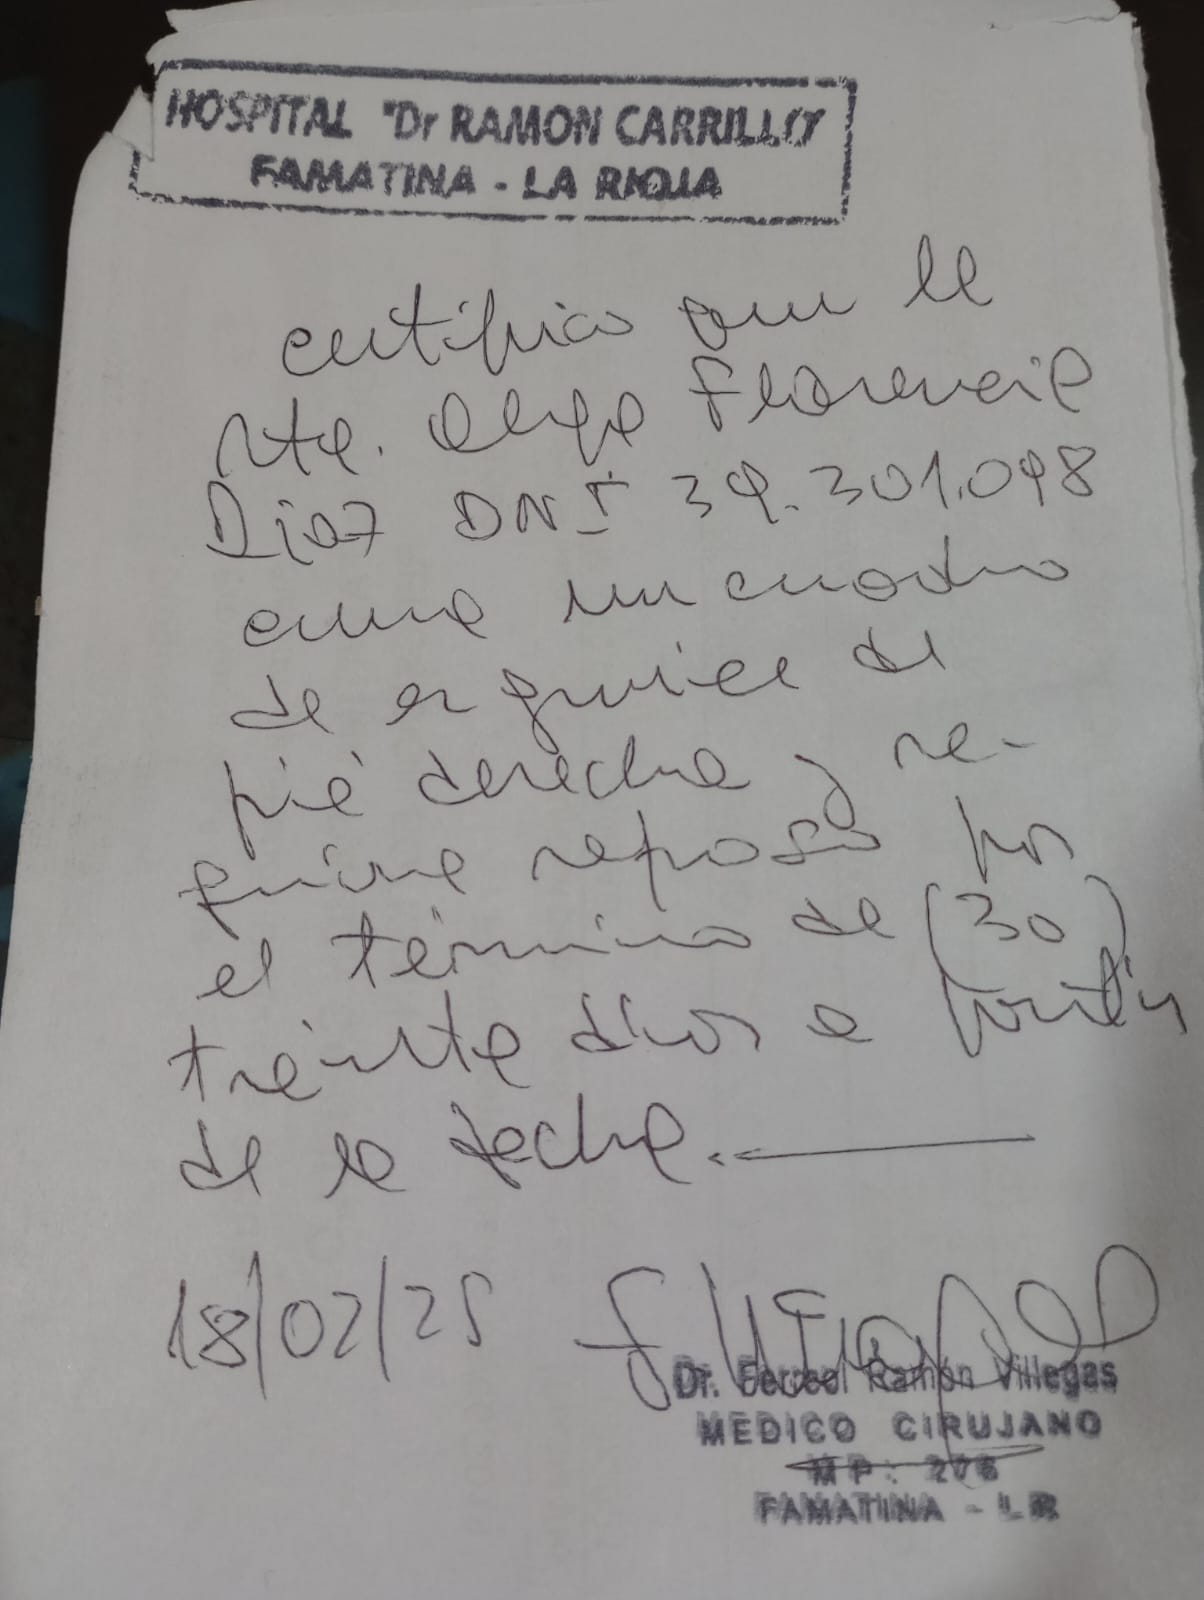 HOSPITAL "Dr RAMON CARRILLO"
FAMATINA - LA RIOJA
certifico que la
Sta. Olga Florencia
Diaz DNI 39.301.098
cursa un cuadro
de esguince de
pié derecho y re-
quiere reposo por
el término de (30)
treinta dias a partir
de la fecha.
18/02/25
Dr. Ramón Villegas
MEDICO CIRUJANO
MP: 276
FAMATINA - LR